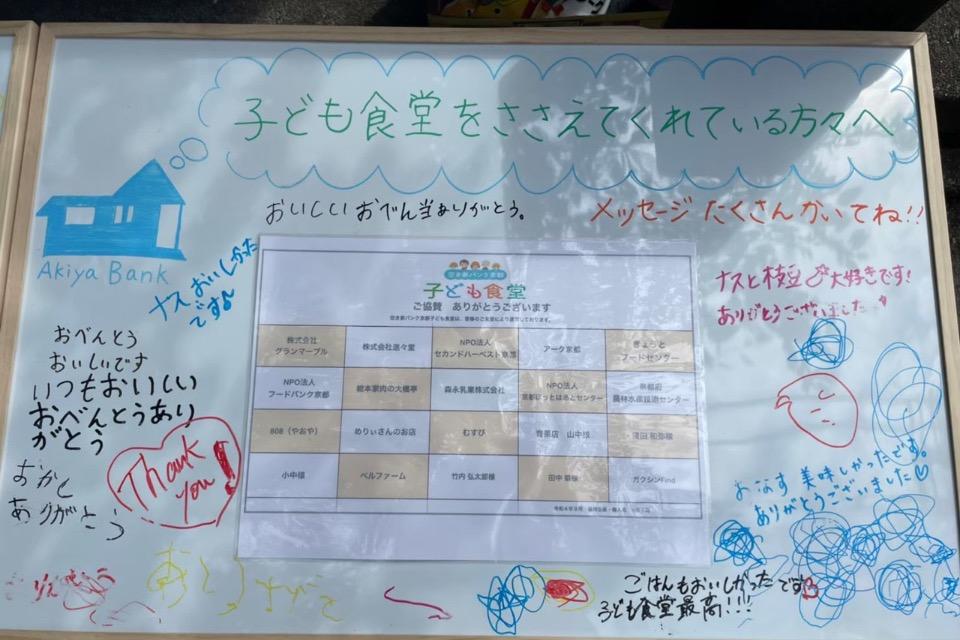 子ども食堂をささえてくれている方々へ
おいしいおべん当ありがとう。
メッセージ たくさんかいてね!!
Akiya Bank
ナスおいしかった
です
ナスと枝豆 大好きです!
ありがとうございました
おべんとう
おいしいです
いつもおいしい
おべんとうあり
がとう
Thank
you!
おかし
ありがとう
空き家バンク京都
子ども食堂
ご協賛 ありがとうございます
株式会社
グランマーブル
株式会社進々堂
NPO法人
セカンドハーベスト京都
アーク京都
きょうと
フードセンター
NPO法人
フードバンク京都
総本家肉の大橋亭
森永乳業株式会社
NPO法人
京都ほっとはあとセンター
京都府
農林水産技術センター
808(やおや)
めりぃさんのお店
むすび
青果店 山中様
窪田 和弥様
小中様
ベルファーム
竹内 弘太郎様
田中 様
ガクシンFind
おなす 美味しかったです。
ありがとうございました♡
ごはんもおいしかったです
子ども食堂最高!!!